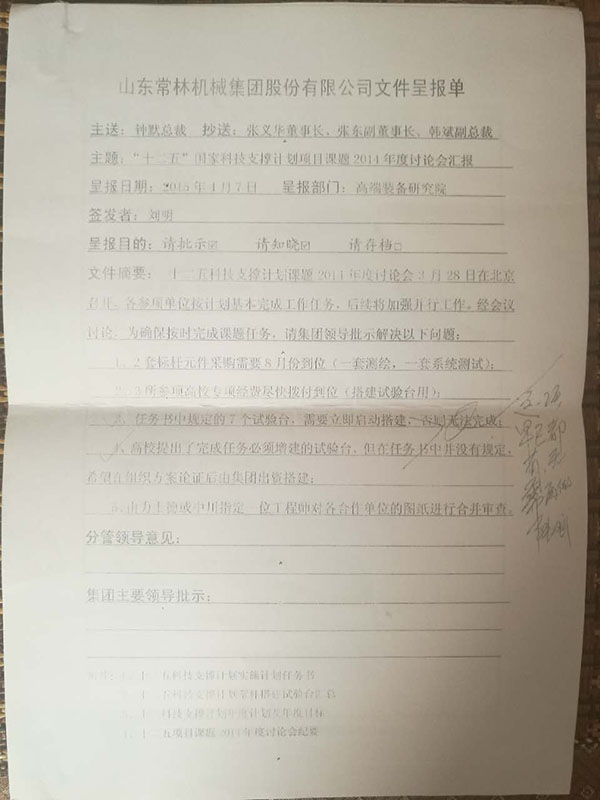 山东常林机械集团股份有限公司文件呈报单
主送：钟默总裁 抄送：张义华董事长、张东副董事长、韩斌副总裁
主题：“十二五”国家科技支撑计划项目课题2014年度讨论会汇报
呈报日期：2015年4月7日 呈报部门：高端装备研究院
签发者：刘明
呈报目的：请批示☑ 请知晓☑ 请存档□
文件摘要：十二五科技支撑计划课题2014年度讨论会3月28日在北京
召开，各参项单位按计划基本完成工作任务，后续将加强并行工作。经会议
讨论，为确保按时完成课题任务，请集团领导批示解决以下问题：
1、2套标杆元件采购需要8月份到位（一套测绘，一套系统测试）；
2、3所参项高校专项经费尽快拨付到位（搭建试验台用）；
3、任务书中规定的7个试验台，需要立即启动搭建，否则无法完成；
4、高校提出了完成任务必须增建的试验台，但在任务书中并没有规定，
希望在组织方案论证后由集团出资搭建；
5、由力士德或中川指定一位工程师对各合作单位的图纸进行合并审查。
分管领导意见：
集团主要领导批示：
附件：1、十二五科技支撑计划实施计划任务书
2、十二五科技支撑计划常林搭建试验台汇总
3、十二五科技支撑计划年度计划及年度目标
4、十二五项目课题2014年度讨论会纪要